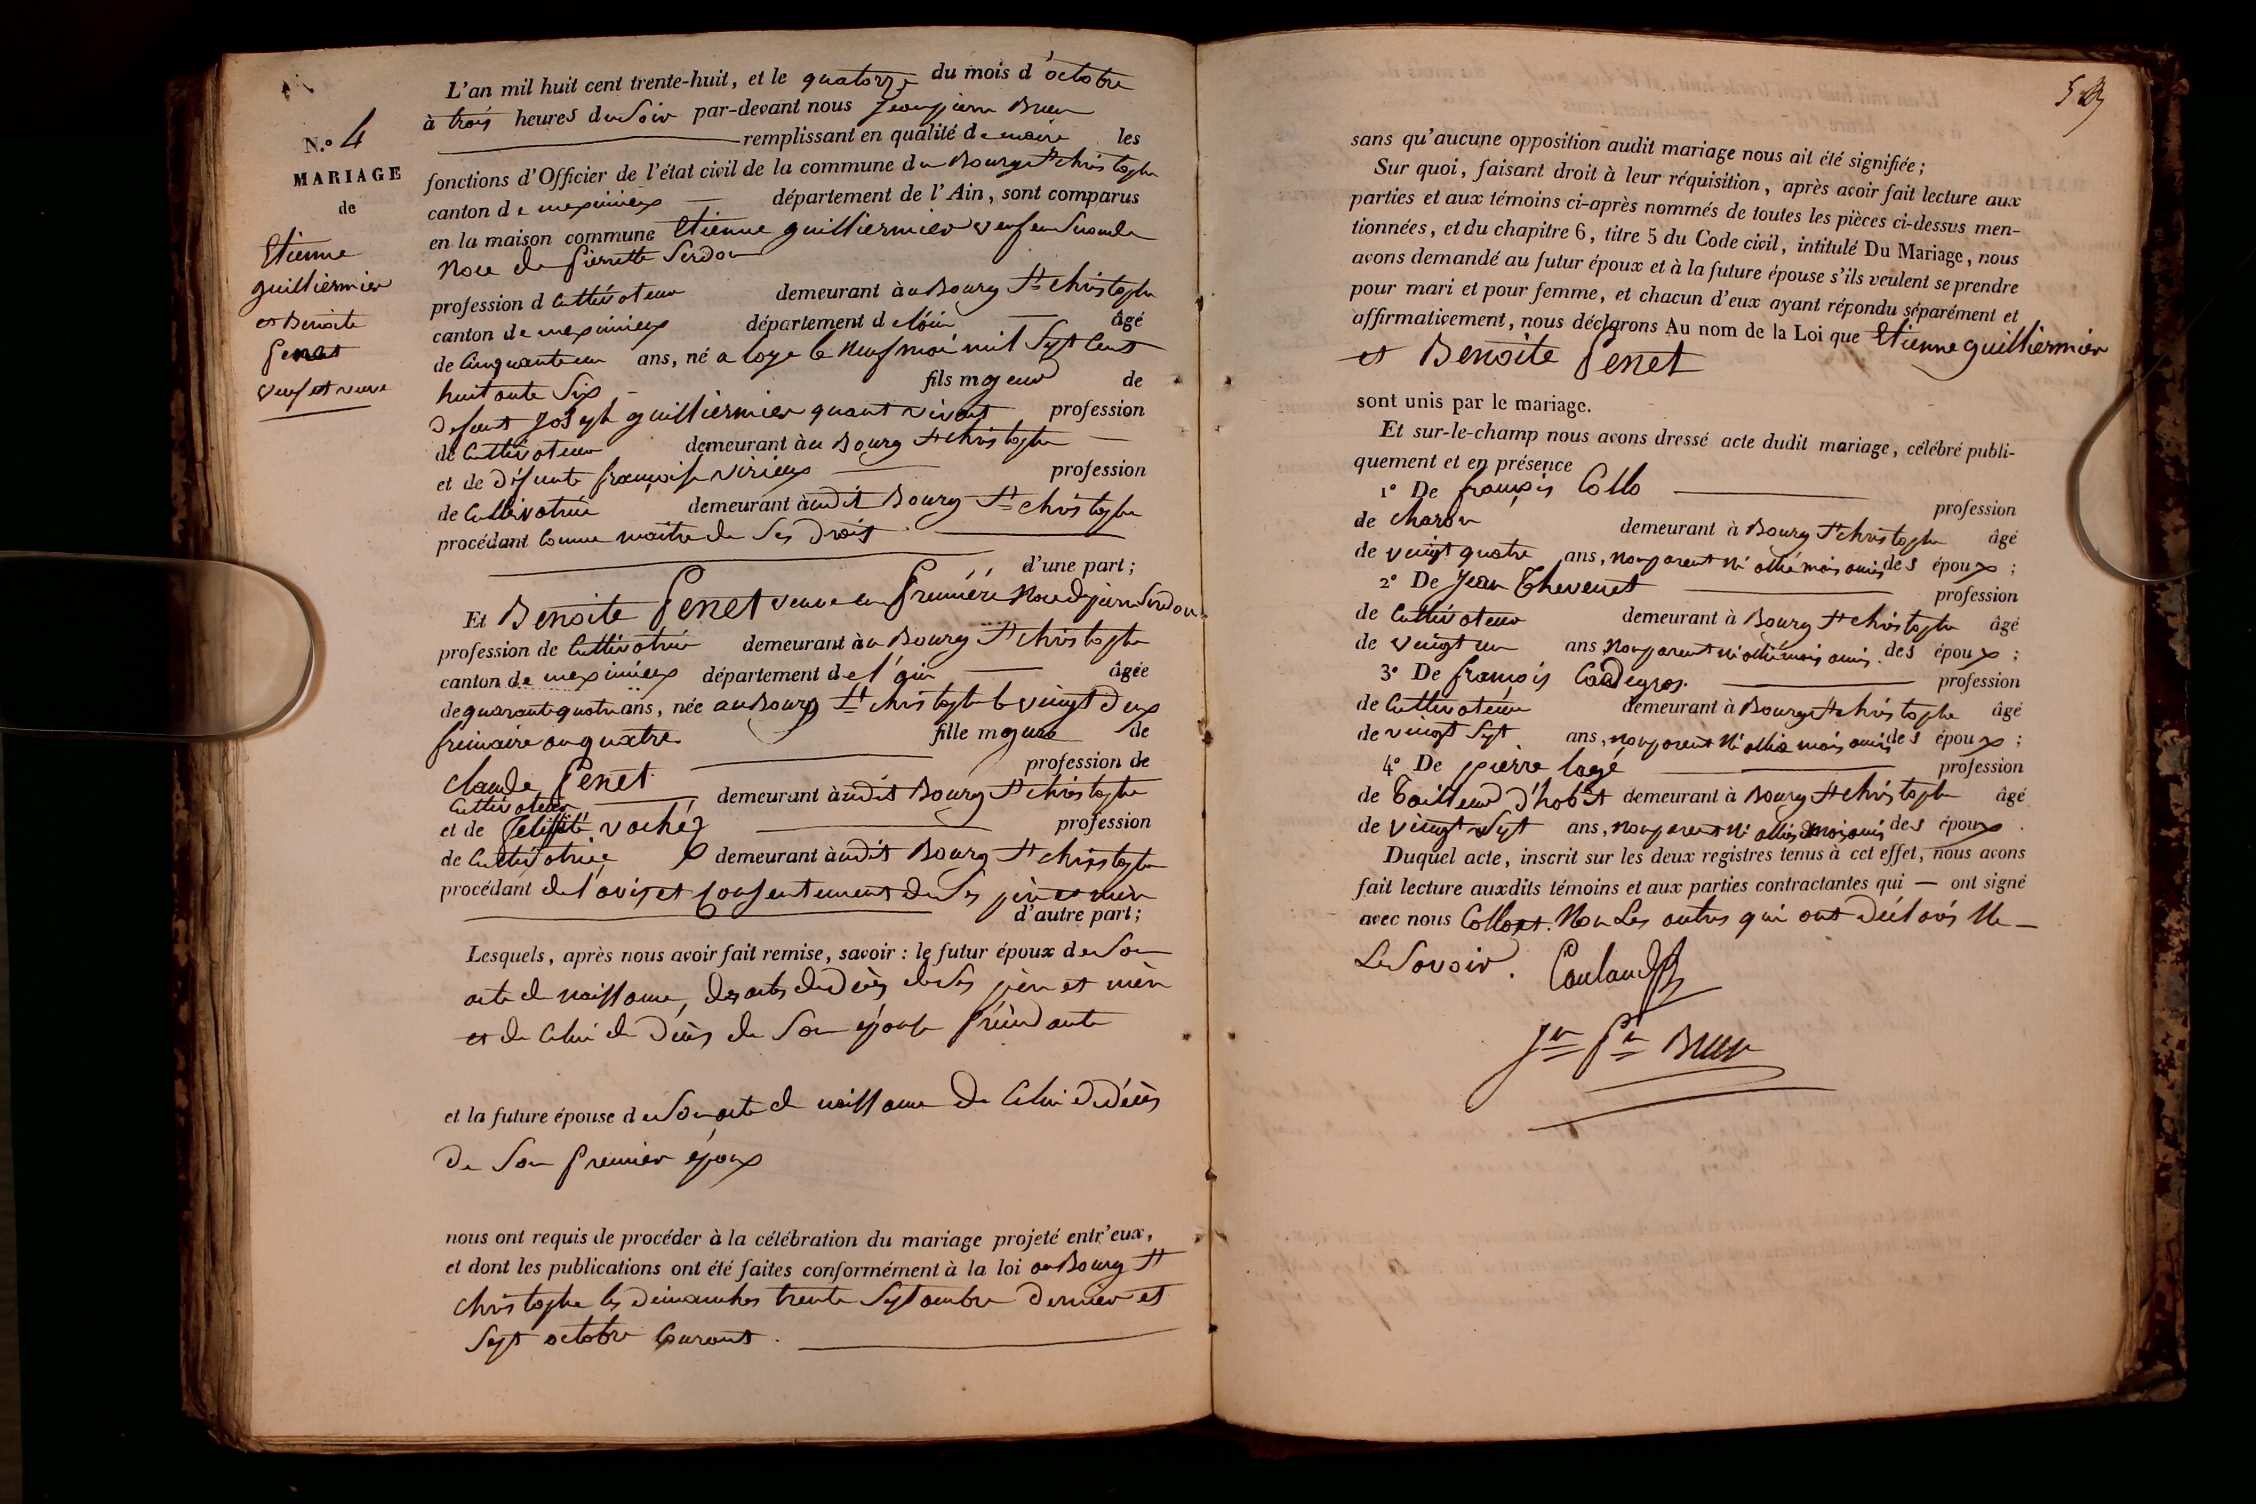 N.º 4
MARIAGE
de
Etienne
guilliermier
et Benoite
Penet
veuf et veuve
L'an mil huit cent trente-huit, et le quatorze du mois d'octobre
à trois heures du Soir par-devant nous Jean pierre Brun
remplissant en qualité de maire les
fonctions d'Officier de l'état civil de la commune du Bourg St christophe
canton de meximieux département de l'Ain, sont comparus
en la maison commune Etienne guilliermier veuf en Seconde
Noce de Pierrette Serdon
profession d Cultivateur demeurant àu Bourg St christophe
canton de meximieux département d l'ain âgé
de Cinquante un ans, né a loye le Neuf mai mil Sept Cent
huitante Six fils majeur de
defunt Joseph guilliermier quant vivant profession
de Cultivateur demeurant àu Bourg St christophe
et de défunte françoise virieux profession
de Cultivatrice demeurant àudit Bourg St christophe
procédant Comme maitre de Ses droits
d'une part;
Et Benoite Penet veuve en Première Noce de pierre Serdon
profession de Cultivatrice demeurant àu Bourg St christophe
canton de meximieux département de l'ain âgée
de quarante quatre ans, née au Bourg St christophe le vingt deux
frimaire an quatre fille majeure de
claude Penet profession de
Cultivateur demeurant àudit Bourg St christophe
et de vachéz profession
de Cultivatrice demeurant àudit Bourg St christophe
procédant de l'avis et Consentement de Ses père et mère
d'autre part;
Lesquels, après nous avoir fait remise, savoir: le futur époux de Son
acte de naissance, des actes de décès de Ses père et mère
et de Celui de décès de Son épouse Précédante
et la future épouse de Son acte de naissance de Celui de décès
de Son Premier époux
nous ont requis de procéder à la célébration du mariage projeté entr'eux,
et dont les publications ont été faites conformément à la loi au Bourg St
christophe les dimanches trente Septembre dernier et
Sept octobre Courant.
sans qu'aucune opposition audit mariage nous ait été signifiée;
Sur quoi, faisant droit à leur réquisition, après avoir fait lecture aux
parties et aux témoins ci-après nommés de toutes les pièces ci-dessus men-
tionnées, et du chapitre 6, titre 5 du Code civil, intitulé Du Mariage, nous
avons demandé au futur époux et à la future épouse s'ils veulent se prendre
pour mari et pour femme, et chacun d'eux ayant répondu séparément et
affirmativement, nous déclarons Au nom de la Loi que Etienne guilliermier
et Benoite Penet
sont unis par le mariage.
Et sur-le-champ nous avons dressé acte dudit mariage, célébré publi-
quement et en présence
1º De françois Collo profession
de charon demeurant à Bourg St christophe âgé
de vingt quatre ans, Non parent Ni allié mais amis des époux;
2º De Jean Thevenet profession
de Cultivateur demeurant à Bourg St christophe âgé
de vingt un ans, Non parent Ni allié mais amis des époux;
3º De françois profession
de Cultivateur demeurant à Bourg St christophe âgé
de vingt Sept ans, non parent Ni allié mais amis des époux;
4º De pierre lagé profession
de Tailleur d'habit demeurant à Bourg St christophe âgé
de vingt Sept ans, non parent Ni allié mais amis des époux.
Duquel acte, inscrit sur les deux registres tenus à cet effet, nous avons
fait lecture auxdits témoins et aux parties contractantes qui — ont signé
avec nous Non Les autres qui ont déclarés Ne
Le Savoir.
Jn Pre Brun